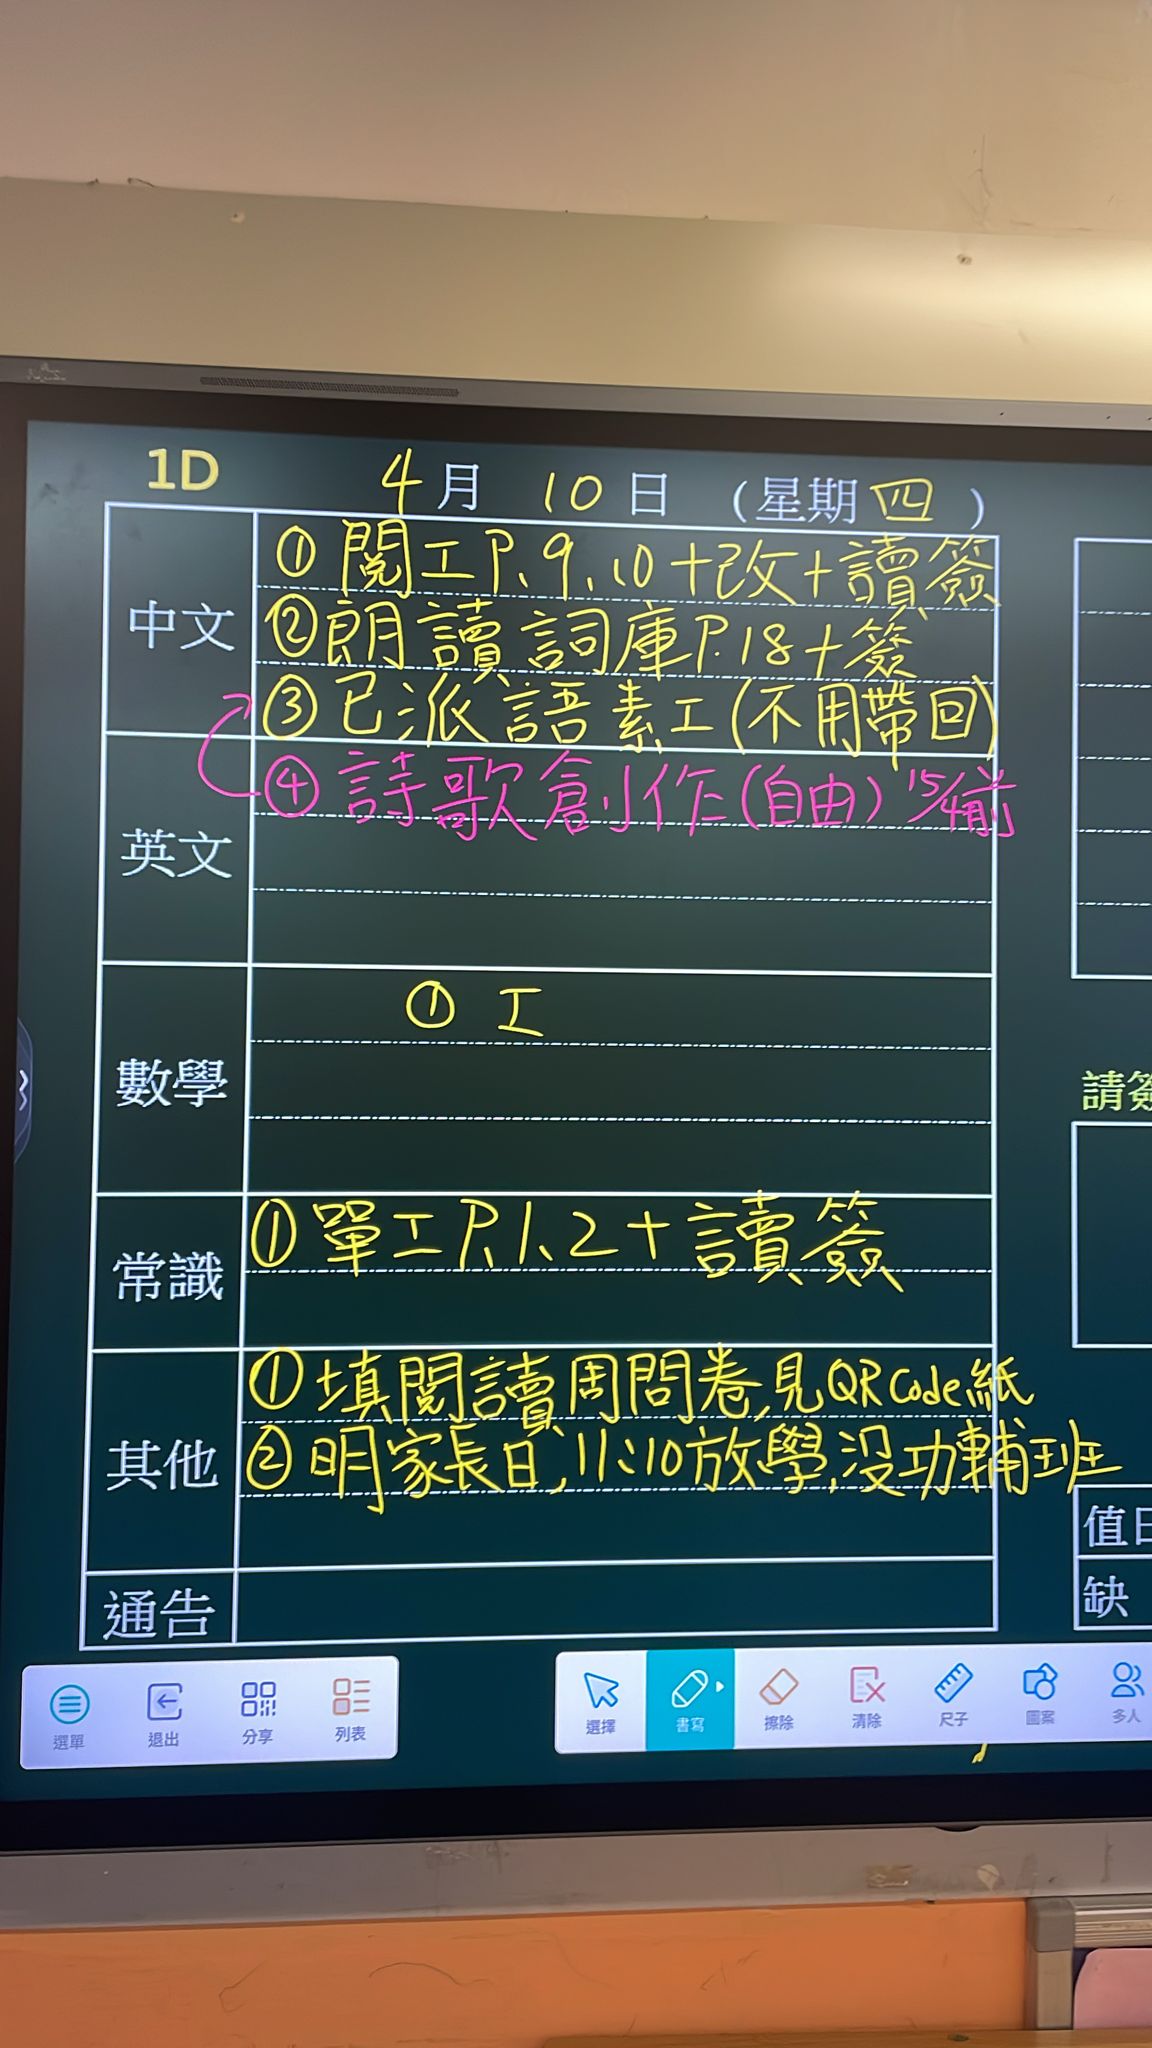 1D 4月10日(星期四)
中文
①閱工P.9、10+改+讀簽
②朗讀詞庫P.18+簽
③已派語素工(不用帶回)
④詩歌創作(自由)15/4前
英文
數學
①工
常識
①單工P.1、2+讀簽
其他
①填閱讀周問卷,見QR Code紙
②明家長日,11:10放學,沒功輔班
通告
請簽
值日
缺
選單 退出 分享 列表
選擇 書寫 擦除 清除 尺子 圖案 多人